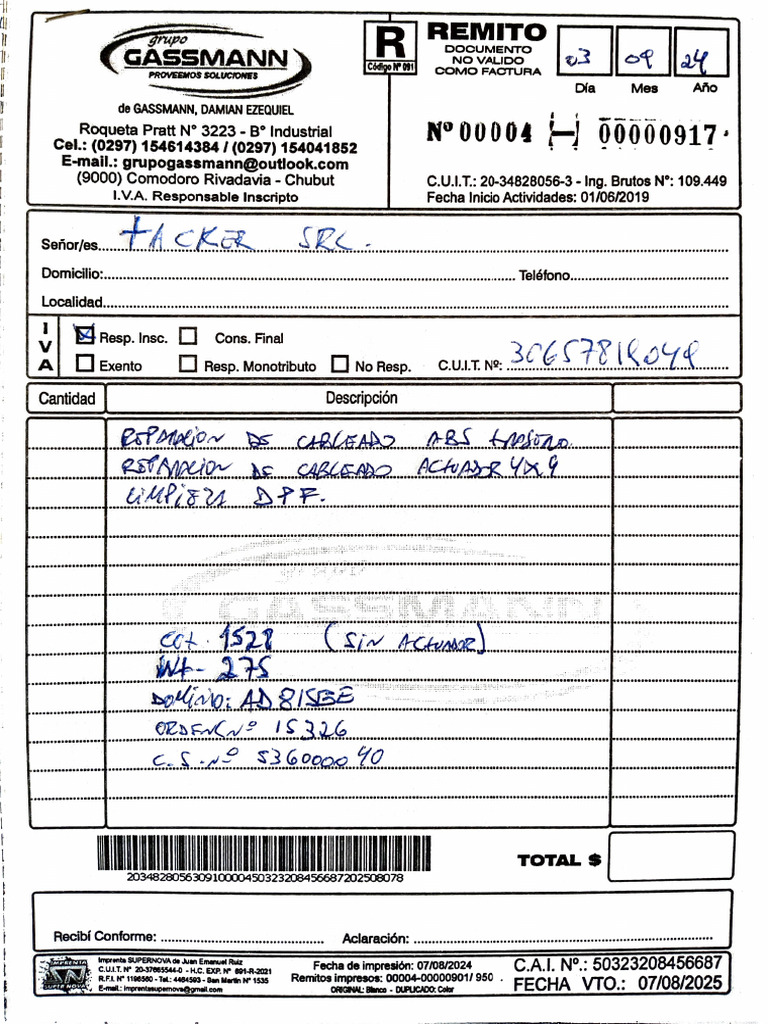 grupo
GASSMANN
PROVEEMOS SOLUCIONES
de GASSMANN, DAMIAN EZEQUIEL
Roqueta Pratt N° 3223 - B° Industrial
Cel.: (0297) 154614384 / (0297) 154041852
E-mail.: grupogassmann@outlook.com
(9000) Comodoro Rivadavia - Chubut
I.V.A. Responsable Inscripto
R
Código N° 091
REMITO
DOCUMENTO
NO VALIDO
COMO FACTURA
03 09 24
Día Mes Año
Nº 00004 - 00000917
C.U.I.T.: 20-34828056-3 - Ing. Brutos N°: 109.449
Fecha Inicio Actividades: 01/06/2019
Señor/es. TACKER SRL.
Domicilio: Teléfono
Localidad
IVA
Resp. Insc. Cons. Final
Exento Resp. Monotributo No Resp. C.U.I.T. Nº:
Cantidad Descripción
REPARACION DE CABLEADO ABS TRASERO
REPARACION DE CABLEADO ACTUADOR 4X4
LIMPIEZA DPF.
grupo
GASSMANN
COT. 1528 (SIN ACTUADOR)
INT- 275
DOMINIO: AD815EE
ORDEN Nº 15326
C.S. Nº 536000040
203482805630910000450323208456687202508078
TOTAL $
Recibí Conforme: Aclaración:
IMPRENTA
SN
SUPER NOVA
Imprenta SUPERNOVA de Juan Emanuel Ruiz
C.U.I.T. N° 20-37665544-0 - H.C. EXP. N° 691-R-2021
R.F.I. N° 1198580 - Tel.: 4484593 - San Martín N° 1535
E-mail.: imprentasupernova@gmail.com
Fecha de impresión: 07/08/2024
Remitos impresos: 00004-000000901/ 950
ORIGINAL: Blanco - DUPLICADO: Color
C.A.I. Nº.: 50323208456687
FECHA VTO.: 07/08/2025